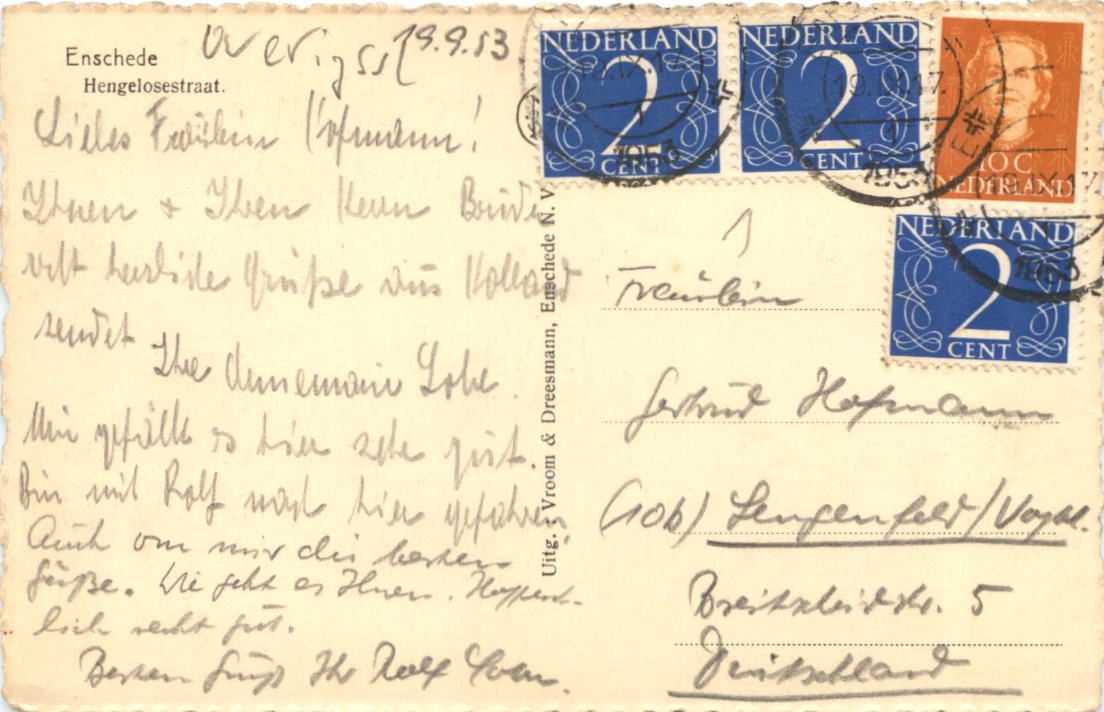 Enschede
Hengelosestraat.
Overijssel 19.9.53
Liebes Fräulein Hofmann!
Ihnen + Ihren Herrn Bruder
recht herzliche Grüße aus Holland
sendet
Ihre
Mir gefällt es hier sehr gut.
Bin mit Rolf nach hier gefahren.
Auch von mir die besten
Grüße. Wie geht es Ihnen. Hoffent-
lich recht gut.
Besten Gruß Ihr Rolf
Uitg.: Vroom & Dreesmann, Enschede N. V.
NEDERLAND
2
CENT
NEDERLAND
2
CENT
10 C
NEDERLAND
NEDERLAND
2
CENT
1953
1953
1953
1
Fräulein
Gertrud Hofmann
(10b) Lengenfeld/Vogtl.
Breitscheidstr. 5
Deutschland